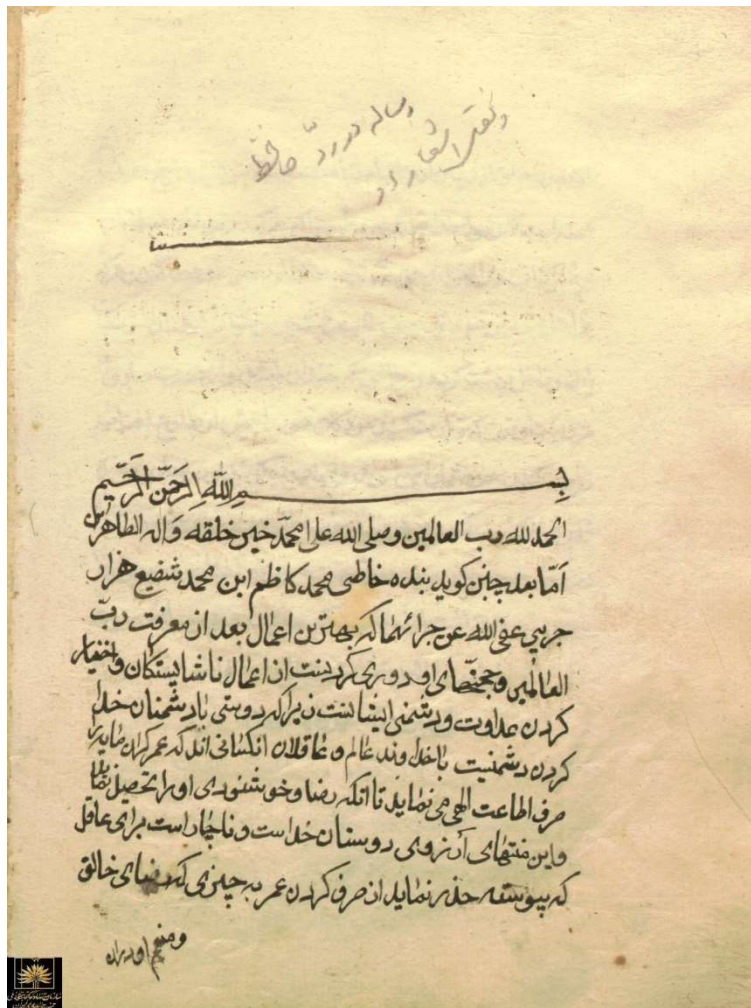 رساله در ردّ حافظ
و نقل اشعار او
بسم الله الرحمن الرحیم
الحمد لله رب العالمین و صلی الله علی محمد خیر خلقه و اله الطاهرین
امّا بعد چنین کوید بنده خاطی محمد کاظم ابن محمد شفیع هزار
جریبی عفی الله عن جرائمهما که بهترین اعمال بعد از معرفت ربّ
العالمین و حجتهای او دوری کردنست از اعمال ناشایستکان و اختیار
کردن عداوت و دشمنی ایشانست زیرا که دوستی با دشمنان خدا
کردن دشمنیست با خداوند عالم و عاقلان انکسانی اند که عمر کران مایه را
صرف اطاعت الهی می نماید تا انکه رضا و خوشنودی او را تحصیل نماید
و این منتهای آرزوی دوستان خداست و ناچار است برای عاقل
که پیوسته حذر نماید از صرف کردن عمر به چیزی که رضای خالق
و منعم او در ان